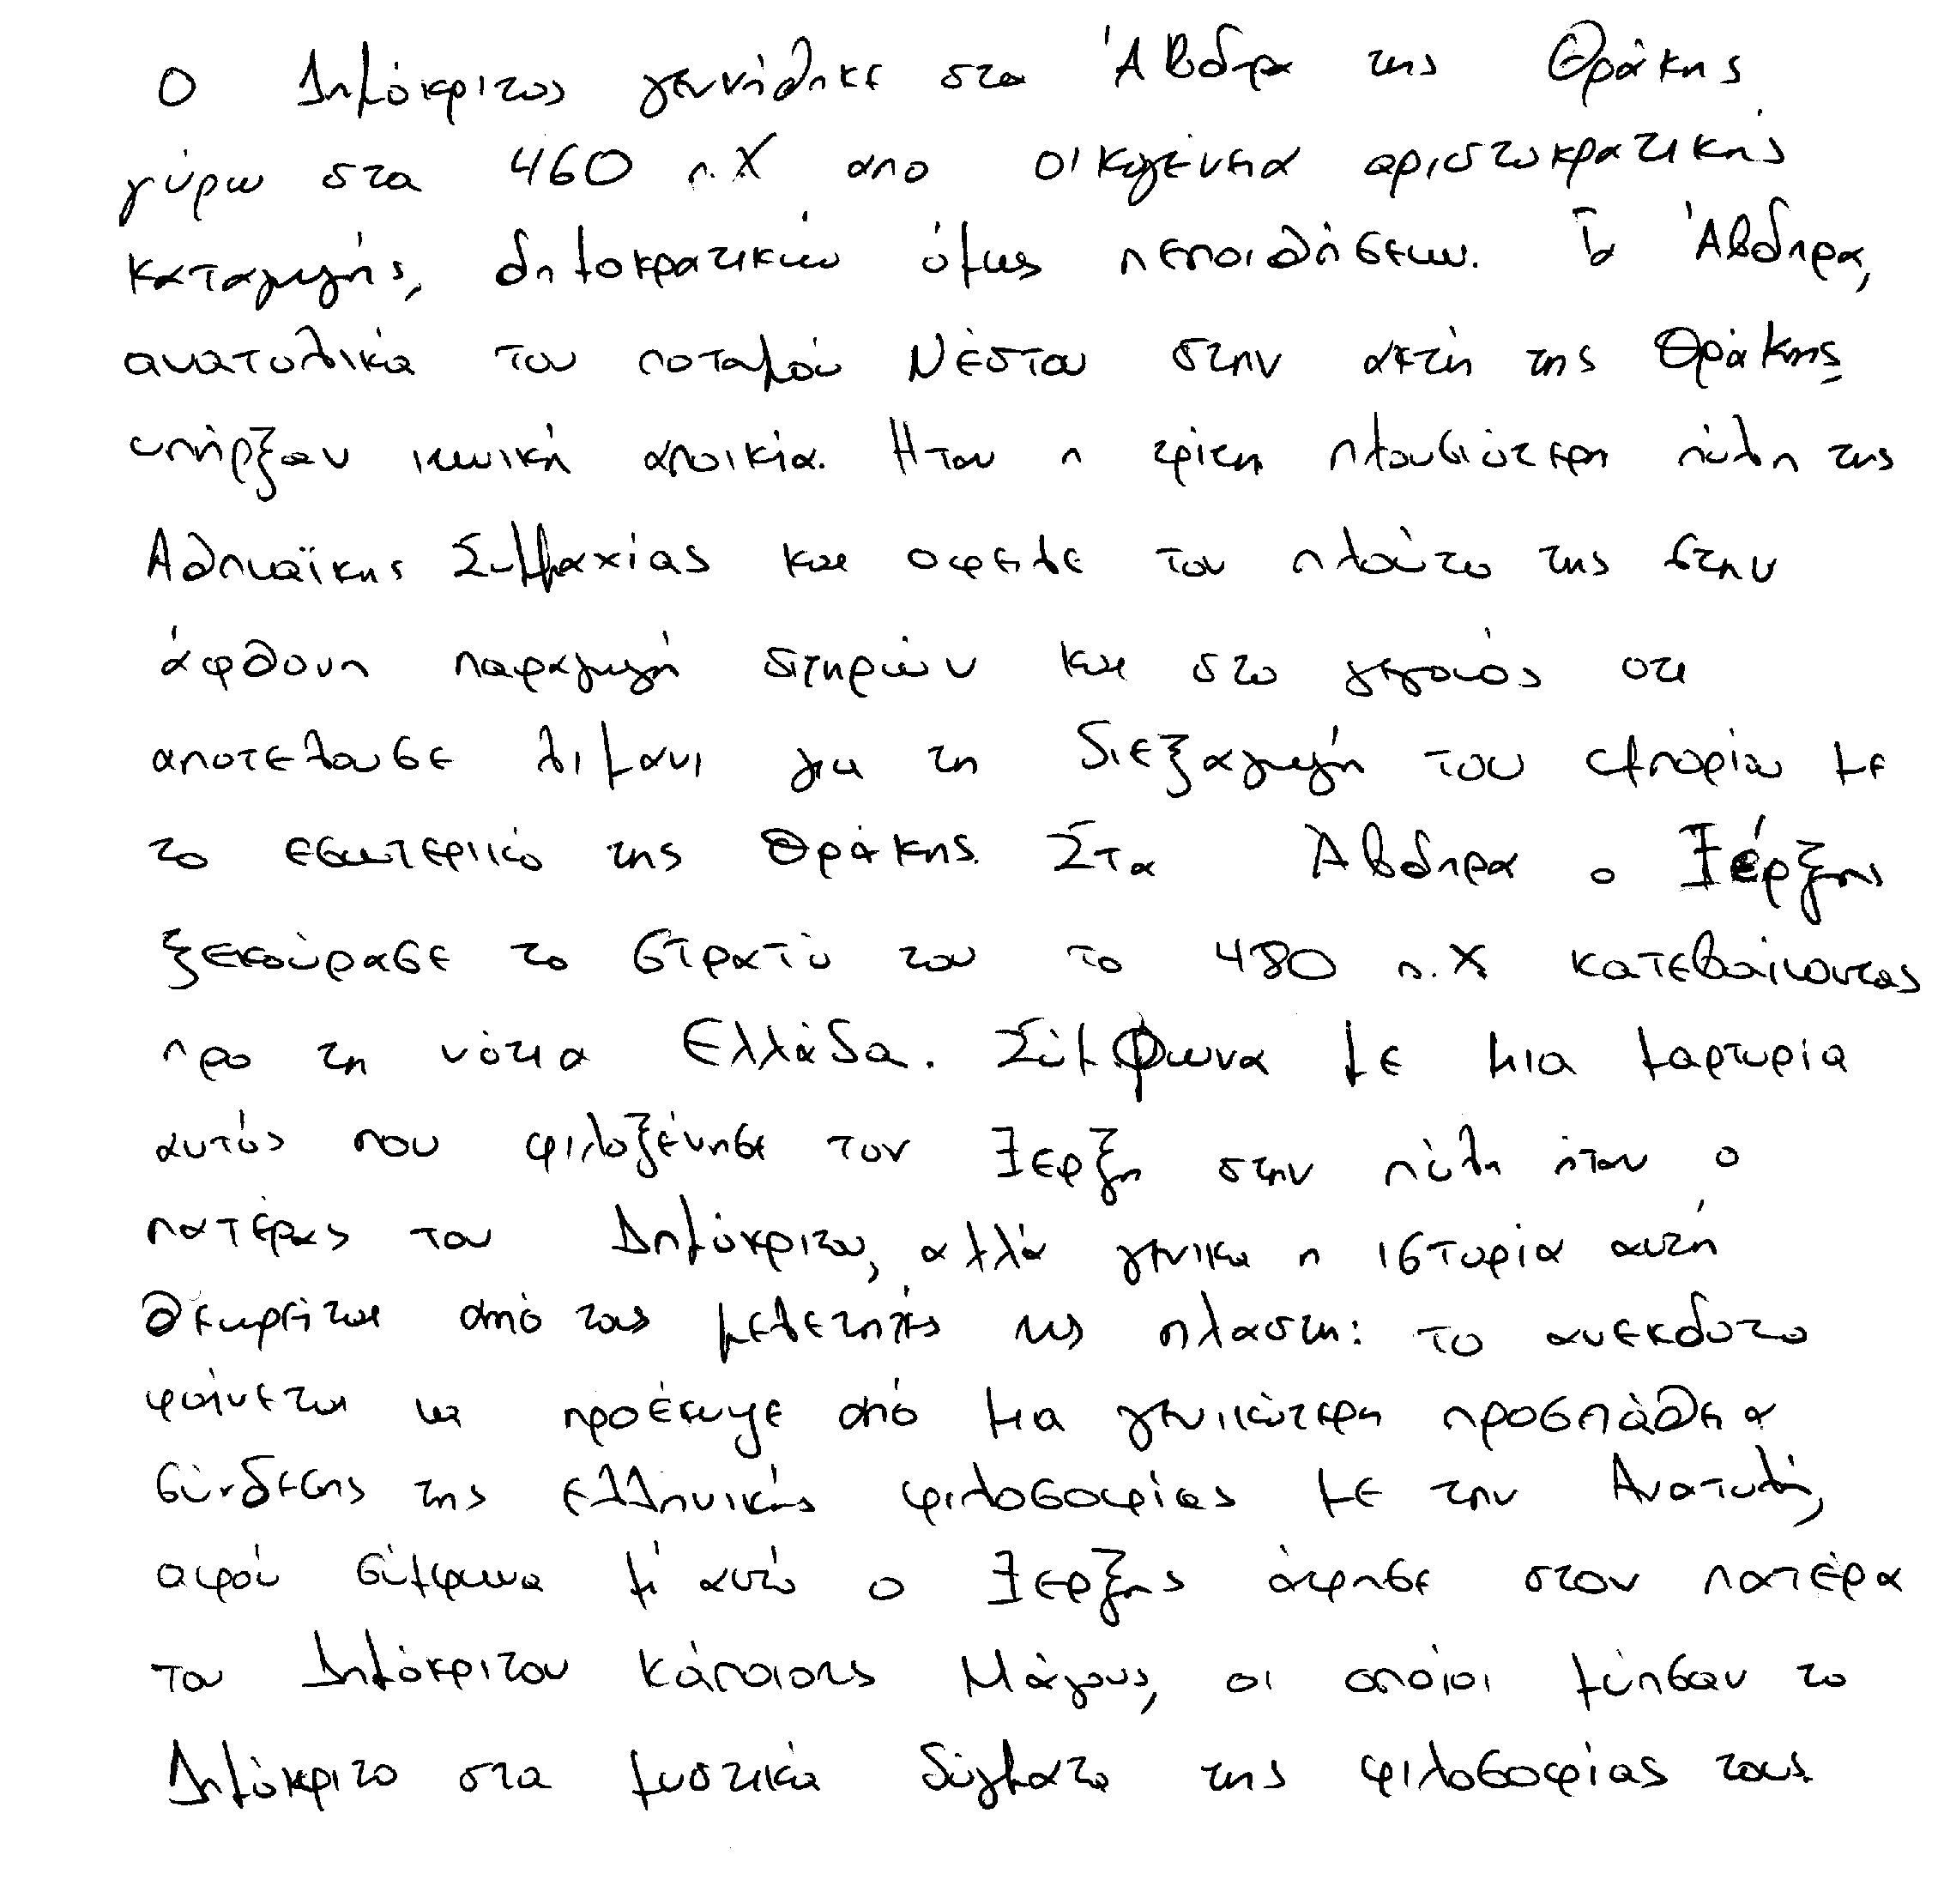 Ο Δημόκριτος γεννήθηκε στα Άβδηρα της Θράκης
γύρω στα 460 π.Χ απο οικογένεια αριστοκρατικής
καταγωγής, δημοκρατικών όμως πεποιθήσεων. Τα Άβδηρα,
ανατολικά του ποταμού Νέστου στην ακτή της Θράκης
υπήρξαν ιωνική αποικία. Ηταν η τρίτη πλουσιότερη πόλη της
Αθηναϊκης Συμμαχίας και οφειλε τον πλούτο της στην
άφθονη παραγωγή σιτηρών και στο γεγονός οτι
αποτελουσε λιμανι για τη διεξαγωγή του εμπορίου με
το εσωτερικό της Θράκης. Στα Άβδηρα ο Ξέρξης
ξεκούρασε το στρατό του το 480 π.Χ κατεβαίνοντας
προ τη νότια Ελλάδα. Σύμφωνα με μια μαρτυρία
αυτός που φιλοξένησε τον Ξερξη στην πόλη ήταν ο
πατέρας του Δημόκριτου, αλλά γενικα η ιστορία αυτή
θεωρείται από τους μελετητές ως πλαστη: το ανεκδοτο
φαίνεται να προέκυψε από μια γενικότερη προσπάθεια
σύνδεσης της ελληνικής φιλοσοφίας με την Ανατολή,
αφού σύμφωνα μ' αυτό ο Ξερξης άφησε στον πατέρα
του Δημόκριτου κάποιους Μάγους, οι οποίοι μύησαν το
Δημόκριτο στα μυστικά δόγματα της φιλοσοφίας τους.